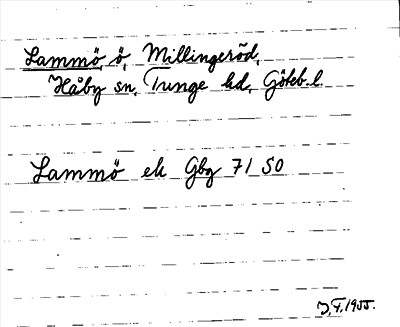 Lammö, ö, Millingeröd,
Håby sn, Tunge hd, Göteb. l.
Lammö ek Gbg 71 SO
J.F. 1955.